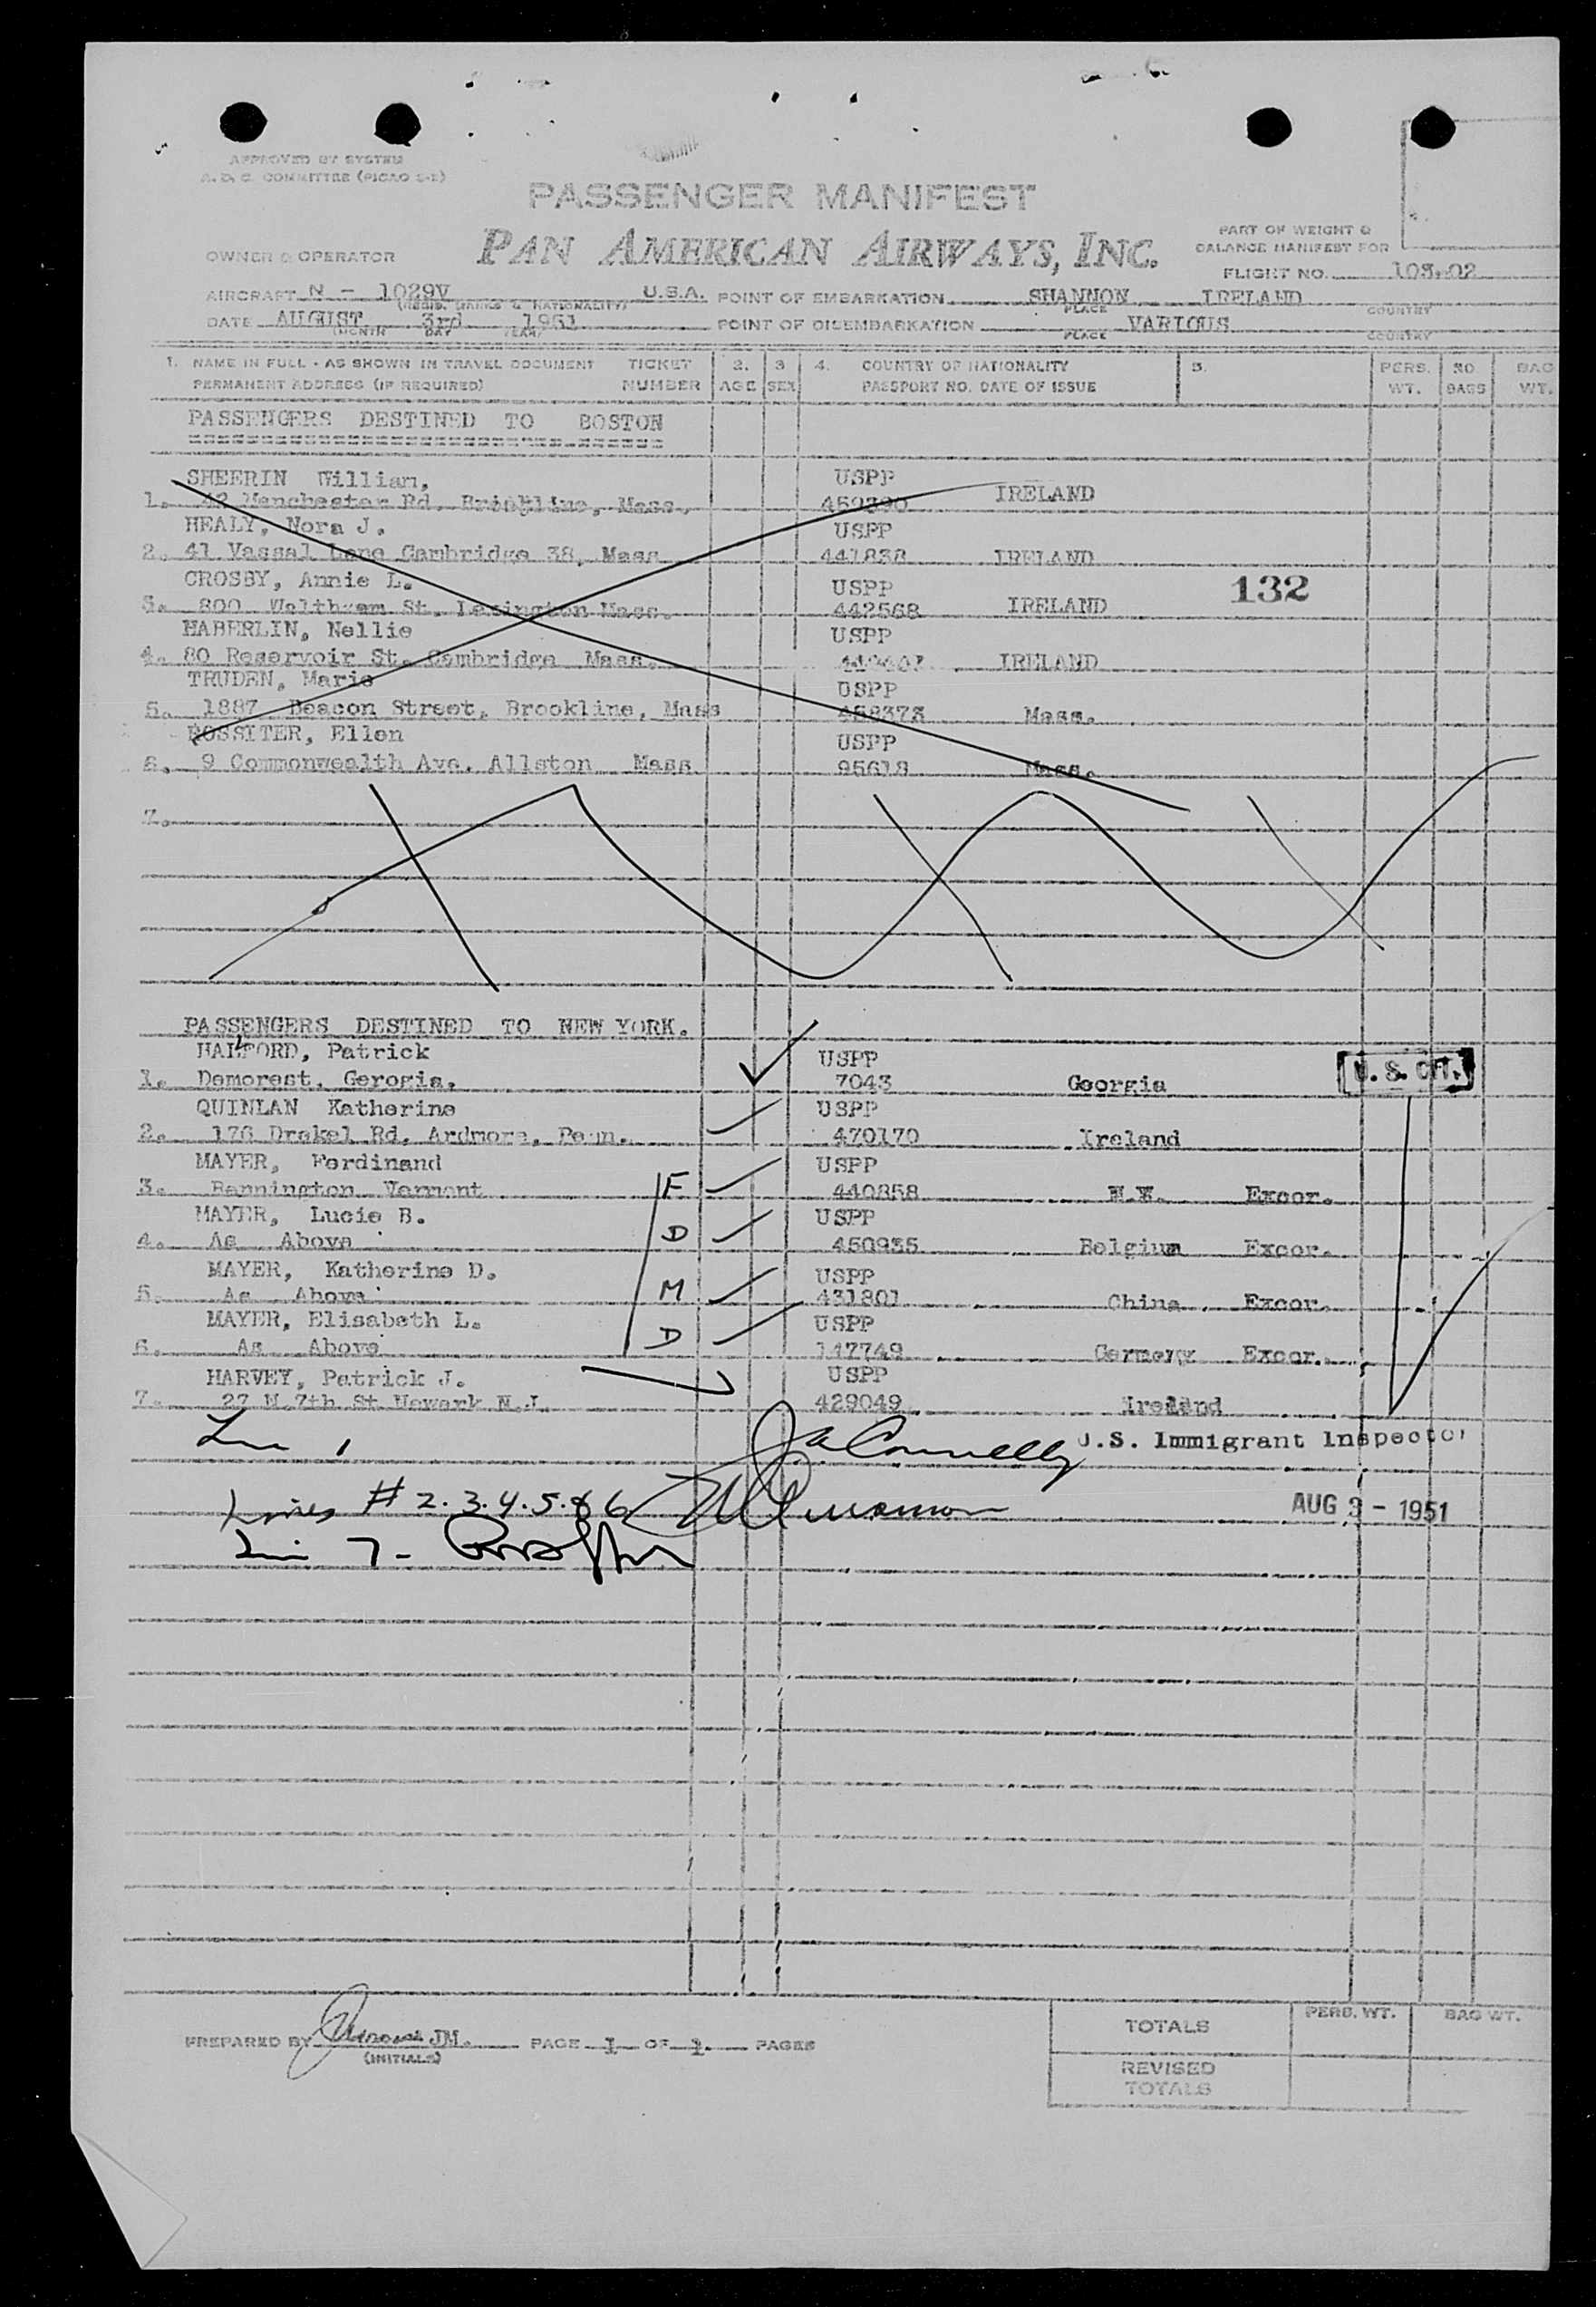 APPROVED BY SYSTEM
A. D. C. COMMITTEE (PICAO S-E)
PASSENGER MANIFEST
PAN AMERICAN AIRWAYS, INC.
PART OF WEIGHT &
BALANCE MANIFEST FOR
FLIGHT NO. 103-02
OWNER & OPERATOR
AIRCRAFT N - 1029V U.S.A. POINT OF EMBARKATION SHANNON IRELAND
(REGIS. MARKS & NATIONALITY) PLACE COUNTRY
DATE AUGUST 3rd 1951 POINT OF DISEMBARKATION VARIOUS
MONTH DAY YEAR PLACE COUNTRY
1. NAME IN FULL - AS SHOWN IN TRAVEL DOCUMENT TICKET 2. 3 4. COUNTRY OF NATIONALITY 5. PERS. NO BAG
PERMANENT ADDRESS (IF REQUIRED) NUMBER AGE SEX PASSPORT NO. DATE OF ISSUE WT. BAGS WT.
PASSENGERS DESTINED TO BOSTON
SHEERIN William, USPP
1. 42 Manchester Rd. Brookline, Mass. 459390 IRELAND
HEALY, Nora J. USPP
2. 41 Vassal Lane Cambridge 38, Mass 441838 IRELAND
CROSBY, Annie L. USPP
3. 800 Waltham St. Lexington Mass. 442568 IRELAND
132
HABERLIN, Nellie USPP
4. 80 Reservoir St. Cambridge Mass. IRELAND
TRUDEN, Marie USPP
5. 1887 Beacon Street, Brookline, Mass 458373 Mass.
ROSSITER, Ellen USPP
6. 9 Commonwealth Ave. Allston Mass 95618 Mass.
7.
PASSENGERS DESTINED TO NEW YORK.
Patrick USPP
1. Demorest, Gerogia. 7043 Georgia U. S. CIT.
QUINLAN Katherine USPP
2. 176 Drakel Rd. Ardmore, Penn. 470170 Ireland
MAYER, Ferdinand USPP
3. Bennington Vermont F 440858 N.Y. Excor.
MAYER, Lucie B. USPP
4. As Above D 450935 Belgium Excor.
MAYER, Katherine D. USPP
5. As Above M 431801 China Excor.
MAYER, Elisabeth L. USPP
6. As Above D 147749 Germany Excor.
HARVEY, Patrick J. USPP
7. 27 N.7th St Newark N.J. 429049 Ireland
Connelly U.S. Immigrant Inspector
Lines # 2.3.4.5.& 6
AUG 3 - 1951
7 -
PREPARED BY JM. PAGE 1 OF 1. PAGES
(INITIALS)
TOTALS PERS. WT. BAG WT.
REVISED
TOTALS